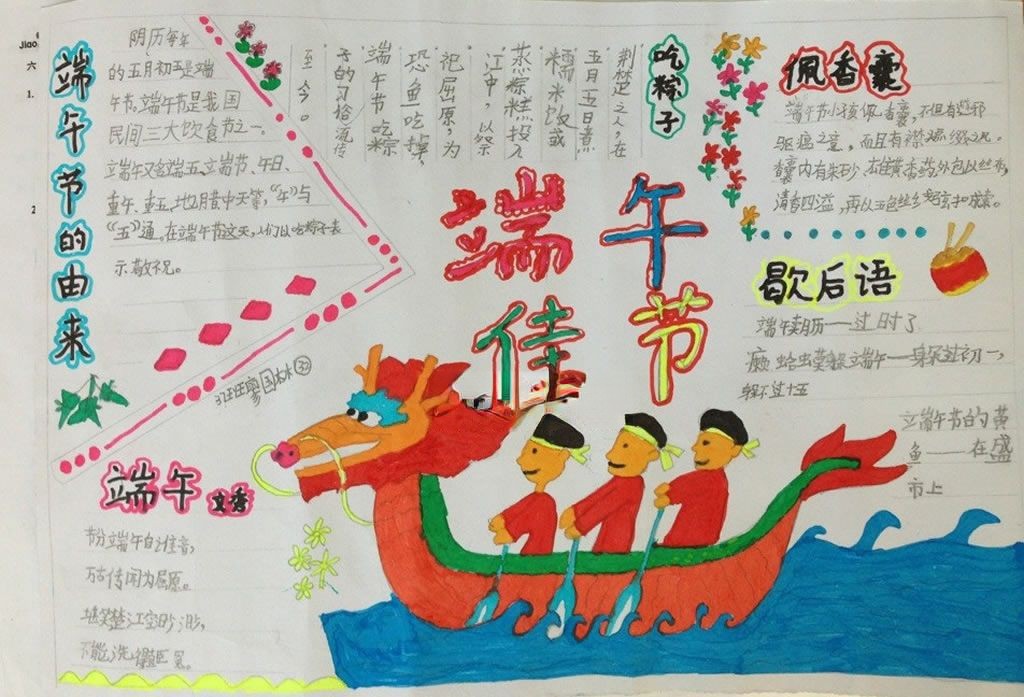 Jiao
六
1.
2
端午节的由来
阴历每年
的五月初五是端
午节。端午节是我国
民间三大饮食节之一。
端午又名端五、立端节、午日、
重午、重五、地月昔中天等，“午”与
“五”通。在端午节这天，人们以吃粽子表
示敬祝。
吃粽子
荆楚之人，在
五月五日煮
糯米饭或
蒸粽糕投入
江中，以祭
祀屈原，为
恐鱼吃掉，
端午节吃粽
子的习俗流传
至今。
佩香囊
端午节小孩佩香囊，不但有避邪
驱瘟之意，而且有襟头点缀之风。
香囊内有朱砂、雄黄、香药，外包以丝布，
清香四溢，再以五色丝线弦扣成索。
端午佳节
歇后语
端午卖月历——过时了
癞蛤虫莫躲端午——躲过初一，
躲不过十五
立端午节的黄
鱼——在盛
市上
端午 文秀
节分端午自谁言，
万古传闻为屈原。
堪笑楚江空渺渺，
不能洗得直臣冤。